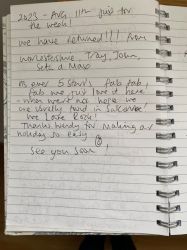 2023 - Aug 11th just for
the week!
We have returned!!! from
Worcestershire, Tracy, John,
Seb & Max
As ever 5 stars fab fab
fab we just love it here
- when we're not here we
are usually found in Salcombe!
We Love Rock!
Thanks Wendy for making our
holiday so easy
See you soon!